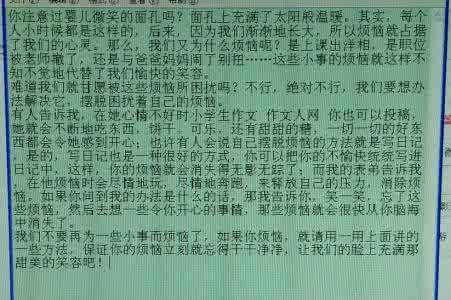 你注意过婴儿微笑的面孔吗？面孔上充满了太阳般温暖。其实，每个
人小时候都是这样的，后来，因为我们渐渐地长大，所以烦恼就占据
了我们的心灵。那么，我们又为什么烦恼呢？是上课出洋相，是职位
被老师撤了，还是与爸爸妈妈闹了别扭……这些小事的烦恼就这样不
知不觉地代替了我们愉快的笑容。
难道我们就甘愿被这些烦恼所困扰吗？不行，绝对不行，我们要想办
法解决它。摆脱困扰着自己的烦恼。
有人告诉我，在她心情不好时小学生作文 作文人网 你也可以投稿，
她就会不断地吃东西，饼干、可乐，还有甜甜的糖，一切一切的好东
西都会令她感到开心；也许有人会说自己摆脱烦恼的方法就是写日记
，是的，写日记也是一种很好的方式，你可以把你的不愉快统统写进
日记中，这样，你的烦恼就会消失得无影无踪了；而我的表弟告诉我
，在他烦恼时会尽情地玩，尽情地奔跑，来释放自己的压力，消除烦
恼。如果你问到我的办法是什么的话，那我告诉你，笑一笑，忘了这
些烦恼，然后去想一些令你开心的事情，那些烦恼就会很快从你脑海
中消失了。
我们不要再为一些小事而烦恼了，如果你烦恼，就请用一用上面讲的
一些方法，保证你的烦恼立刻就忘得干干净净，让我们的脸上充满那
甜美的笑容吧！